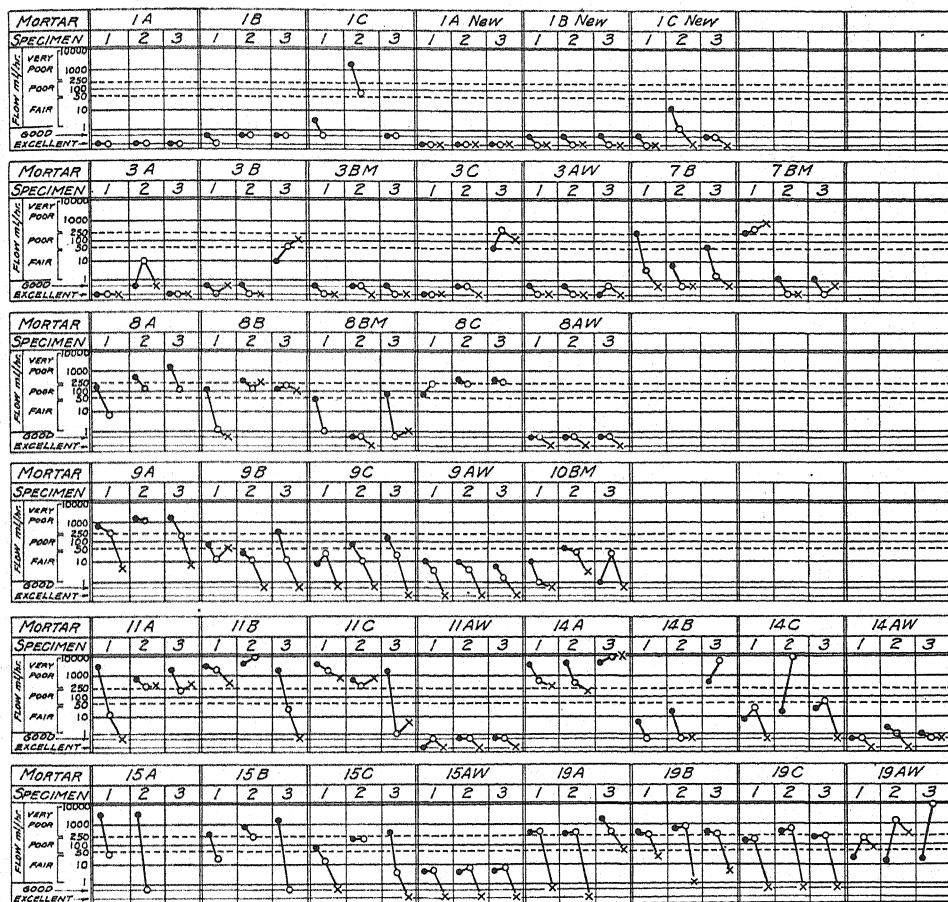 MORTAR 1A 1B 1C 1A New 1B New 1C New
SPECIMEN 1 2 3 1 2 3 1 2 3 1 2 3 1 2 3 1 2 3
FLOW ml/hr.
VERY POOR
POOR
FAIR
GOOD
EXCELLENT
10000
1000
250
100
50
10
1
MORTAR 3A 3B 3BM 3C 3AW 7B 7BM
SPECIMEN 1 2 3 1 2 3 1 2 3 1 2 3 1 2 3 1 2 3 1 2 3
FLOW ml/hr.
VERY POOR
POOR
FAIR
GOOD
EXCELLENT
10000
1000
250
100
50
10
1
MORTAR 8A 8B 8BM 8C 8AW
SPECIMEN 1 2 3 1 2 3 1 2 3 1 2 3 1 2 3
FLOW ml/hr.
VERY POOR
POOR
FAIR
GOOD
EXCELLENT
10000
1000
250
100
50
10
1
MORTAR 9A 9B 9C 9AW 10BM
SPECIMEN 1 2 3 1 2 3 1 2 3 1 2 3 1 2 3
FLOW ml/hr.
VERY POOR
POOR
FAIR
GOOD
EXCELLENT
10000
1000
250
100
50
10
1
MORTAR 11A 11B 11C 11AW 14A 14B 14C 14AW
SPECIMEN 1 2 3 1 2 3 1 2 3 1 2 3 1 2 3 1 2 3 1 2 3 1 2 3
FLOW ml/hr.
VERY POOR
POOR
FAIR
GOOD
EXCELLENT
10000
1000
250
100
50
10
1
MORTAR 15A 15B 15C 15AW 19A 19B 19C 19AW
SPECIMEN 1 2 3 1 2 3 1 2 3 1 2 3 1 2 3 1 2 3 1 2 3 1 2 3
FLOW ml/hr.
VERY POOR
POOR
FAIR
GOOD
EXCELLENT
10000
1000
250
100
50
10
1